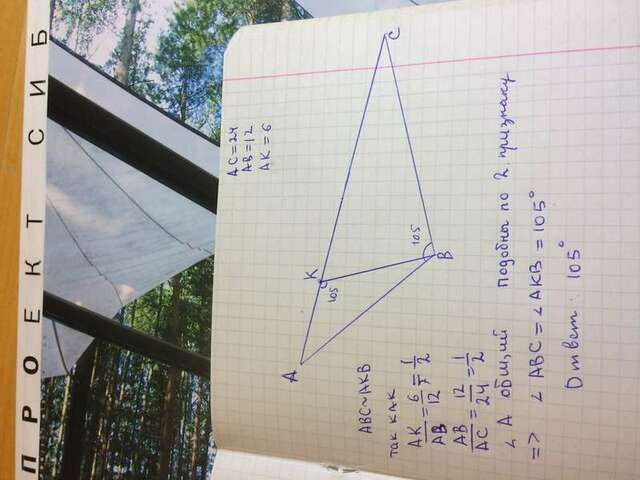 ПРОЕКТ СИБ
AC=24
AB=12
AK=6
A
K
105
C
105
B
ABC~AKB
так как
AK/AB = 6/12 = 1/2
AB/AC = 12/24 = 1/2
∠ A общий Подобны по 2 признаку
=> ∠ ABC = ∠ AKB = 105°
Ответ: 105°